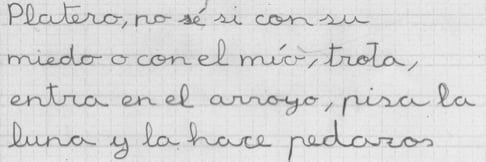 Platero, no sé si con su
miedo o con el mío, trota,
entra en el arroyo, pisa la
luna y la hace pedazos